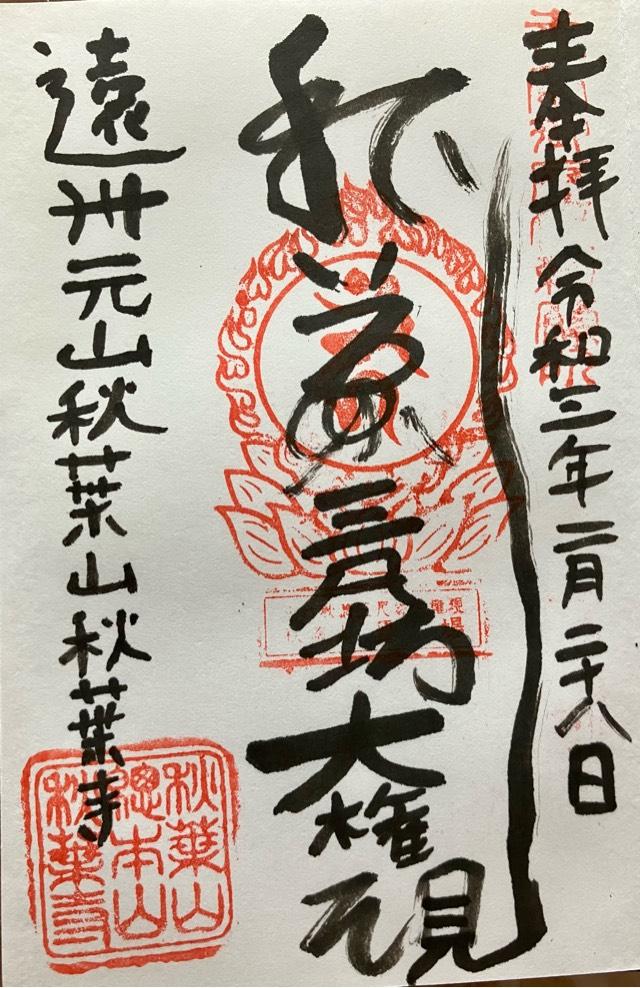 奉拝 令和三年二月二十八日
秋葉三尺坊大権現
遠州元山秋葉山秋葉寺
秋葉山
總本山
秋葉寺